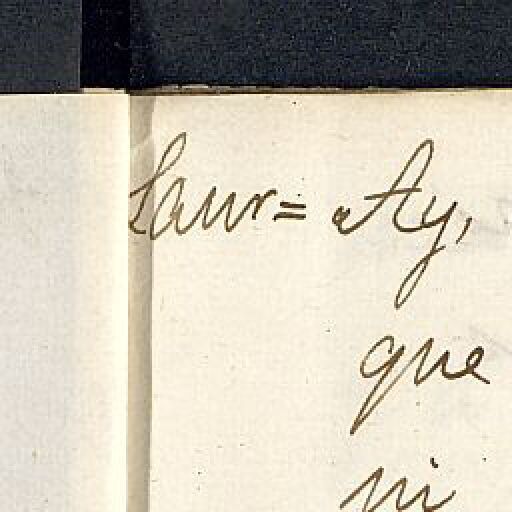 Laur= Ay,
que
ni